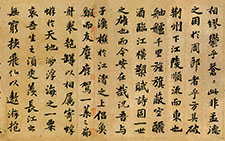 相繆鬱乎蒼〻此非孟德
之困於周郎者乎方其破
荊州下江陵順流而東也
舳艫千里旌旗蔽空釃
酒臨江橫槊賦詩固一世
之雄也而今安在哉況吾與
子漁樵於江渚之上侶魚
鰕而友麋鹿駕一葉之扁
舟舉匏樽以相屬寄蜉
蝣於天地渺浮海之一粟
哀吾生之須臾羨長江之
無窮挾飛仙以遨遊抱